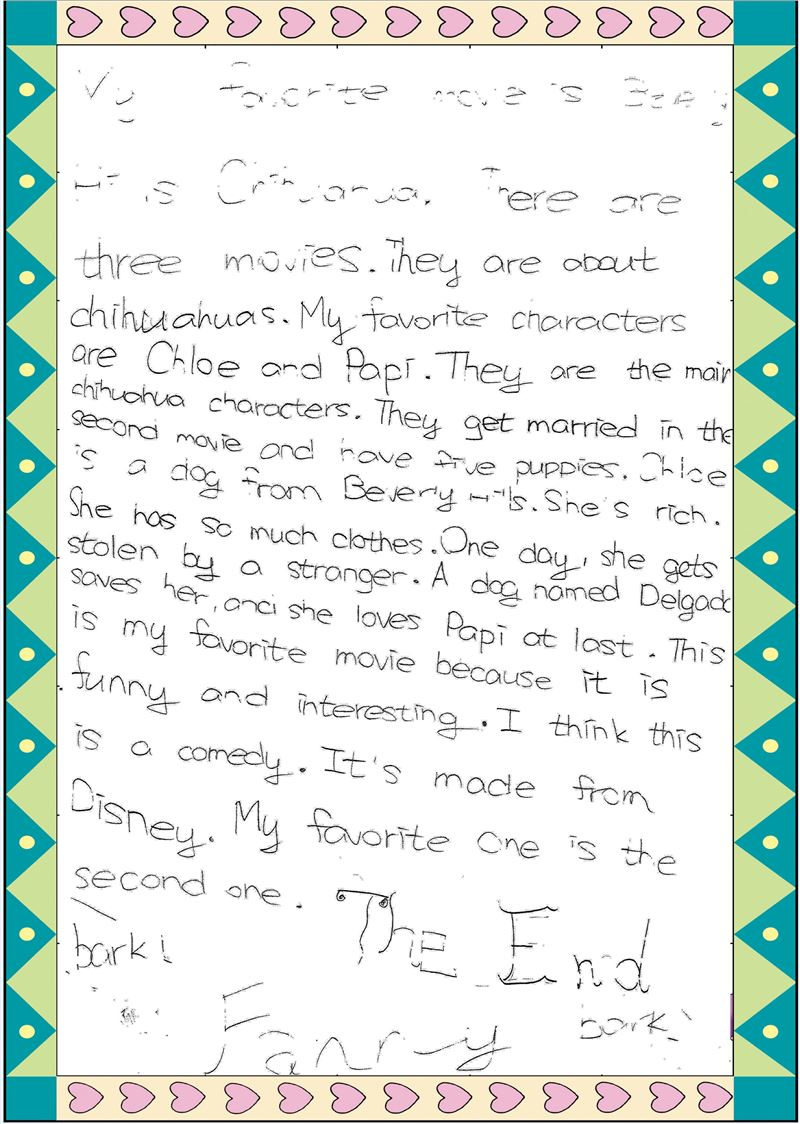 My favorite movie is Bever
Hills Chihuahua. There are
three movies. They are about
chihuahuas. My favorite characters
are Chloe and Papi. They are the main
chihuahua characters. They get married in the
second movie and have five puppies. Chloe
is a dog from Beverly Hills. She's rich.
She has so much clothes. One day, she gets
stolen by a stranger. A dog named Delgado
saves her, and she loves Papi at last. This
is my favorite movie because it is
funny and interesting. I think this
is a comedy. It's made from
Disney. My favorite one is the
second one. The End
bark!
bark!
Fanny